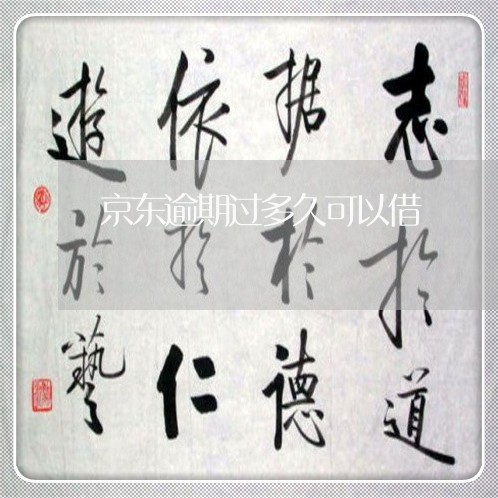 志於道
据於德
依於仁
遊於藝
京东逾期过多久可以借